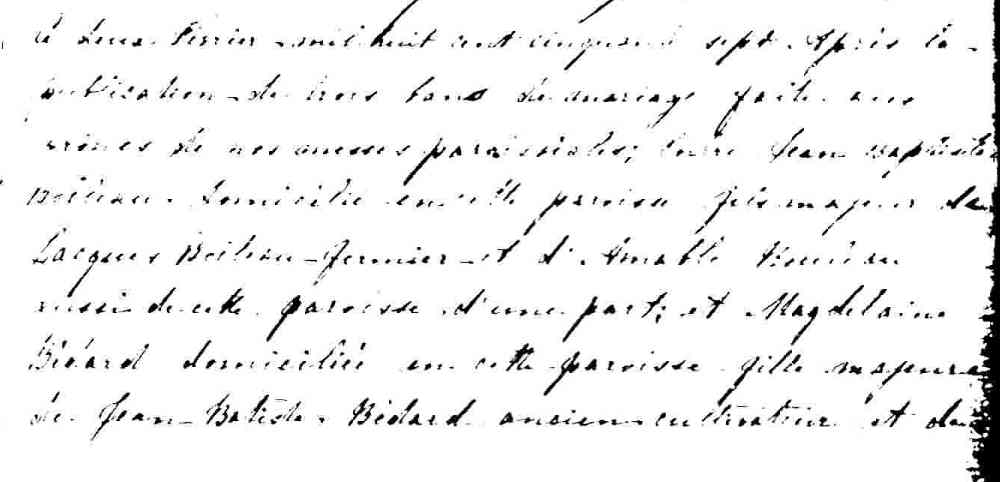 Le deux Février mil huit cent cinquante sept. Après la
publication de trois bans de mariage faite aux
prônes de nos messes paroissiales; Entre Jean Baptiste
Boileau domicilié en cette paroisse fils majeur de
Jacques Boileau fermier et d'Amable
aussi de cette paroisse d'une part; et Magdelaine
Bédard domiciliée en cette paroisse fille majeure
de Jean-Batiste Bédard ancien cultivateur et de